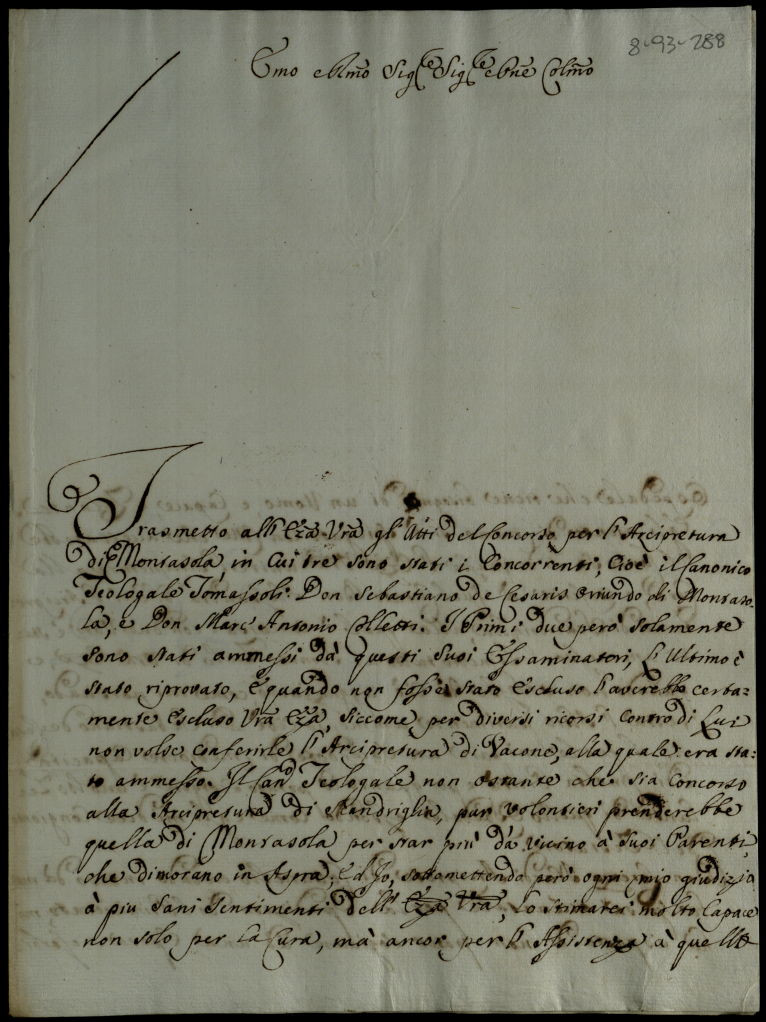 8-93-288
Emo e Rmo Sig.re Sig.re e Pne Colmo
Trasmetto all' Eza Vra gli Atti del Concorso per l'Arcipretura
di Montasola, in Cui tre sono stati i Concorrenti, Cioè il Canonico
Teologale Tomassoli. Don Sebastiano de Cesaris oriundo di Montaso-
la, e Don Marc' Antonio Colletti. I Primi due però solamente
sono stati ammessi dà questi Suoi Essaminatori, l'Ultimo è
stato riprovato, e quando non fosse stato Escluso l'averebbe certa=
mente Escluso Vra Eza, siccome per diversi ricorsi Contro di Lui
non volse conferirle l'Arcipretura di Vacone, alla quale era sta=
to ammesso. Il Can.co Teologale non ostante che sia Concorso
alla Arcipretura di Scandriglia, pur volontieri prenderebbe
quella di Montasola per star più dà vicino à Suoi Parenti,
che dimorano in Aspra; Ed Jo, sottomettendo però ogni mio giudizio
à più Sani Sentimenti dell' Eza Vra, Lo Stimarei molto Capace
non solo per la Cura, mà ancor per l'Assistenza à quelle